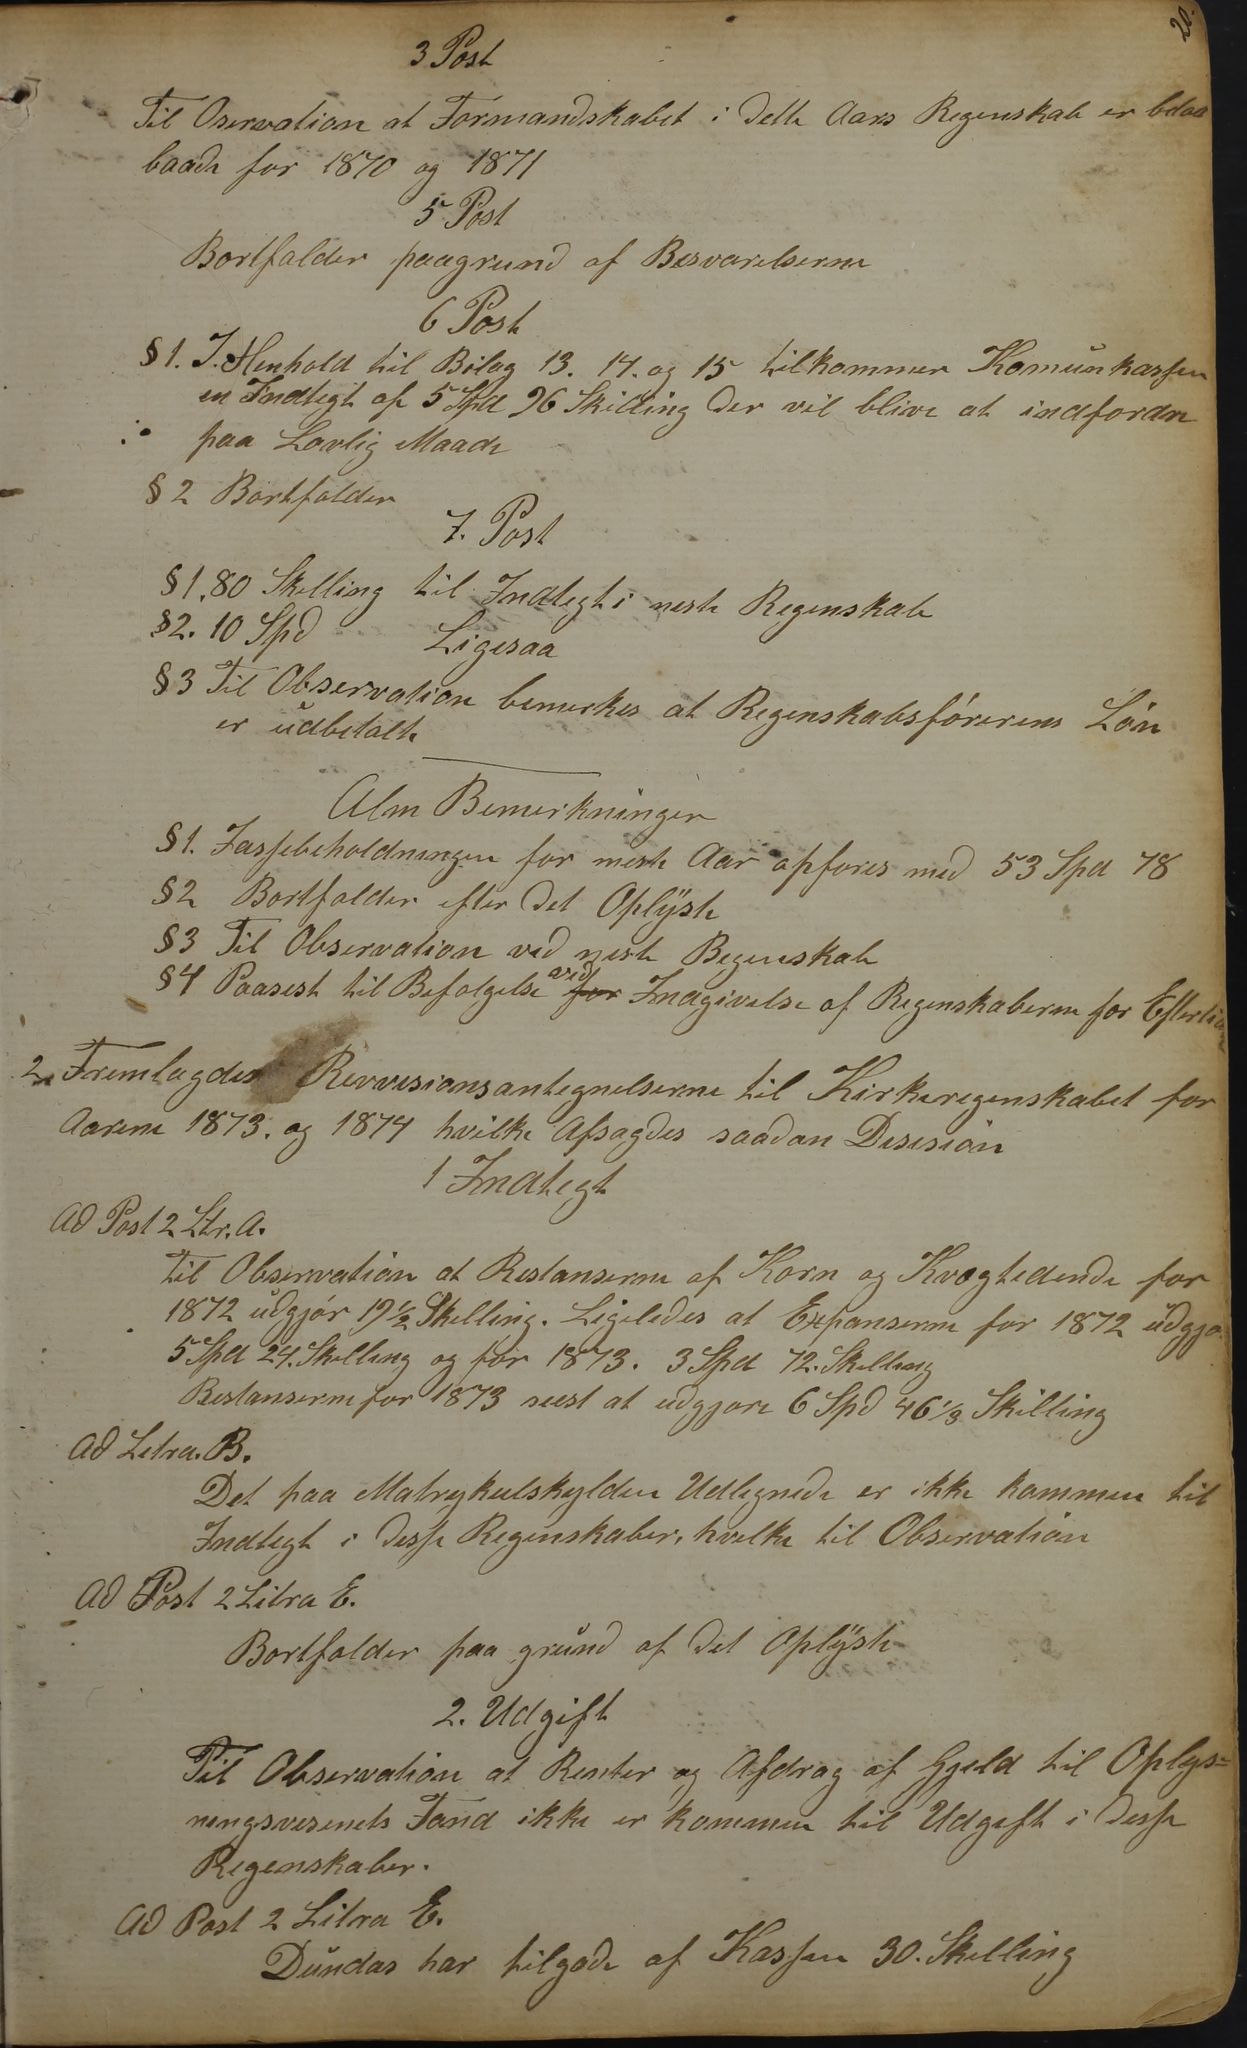 20.
3 Post
Til Oservation at Formandskabet i dette Aars Regenskab er
baade for 1870 og 1871
5 Post
Bortfalder paagrund af Besvarelserne
6 Post
§ 1. I. Henhold til Bilag 13. 14. og 15 tilkommer Komunkassen
en Indtegt af 5 Spd 96 Skilling der vil blive at indfordre
paa Lovlig Maade
§ 2 Bortfalder
7. Post
§ 1. 80 Skelling til Indtegt i neste Regenskab
§ 2. 10 Spd Ligesaa
§ 3 Til Observation bemerkes at Regenskabsførerens Løn
er udbetalt
Alm Bemerkninger
§ 1. Kassebeholdningen for neste Aar opføres med 53 Spd 78
§ 2 Bortfalder efter det Oplyste
§ 3 Til Observation ved neste Regenskab
§ 4 Paasest til Befølgelse ved for Indgivelse af Regenskaberne for
2. Fremlagdes Revvisionsantegnelserne til Kirkeregenskabet for
Aarene 1873. og 1874 hvilke Afsagdes saadan Desision
1 Indtegt
Ad Post 2 Ltr. A.
Til Observation at Restanserne af Korn og Kvægtedende for
1872 udgjør 19 1/2 Skelling. Ligeledes at Expanserne for 1872 udgjø
5 Spd 24. Skelling og for 1873. 3 Spd 72. Skelling
Restanserne for 1873 seest at udgjøre 6 Spd 46 1/3 Skilling
Ad Letra. B.
Det paa Matrykulskylden Udlegnede er ikke kommen til
Indtegt i desse Regenskaber, hvelke til Observation
Ad Post 2 Litra E.
Bortfalder paa grund af det Oplyste
2. Udgift
Til Observation at Renter og Afdrag af Gjeld til Oplys=
ningsvesenets Fond ikke er kommen til Udgeft i desse
Regenskaber.
Ad Post 2 Litra E.
Dundas har tilgode af Kassen 30. Skelling